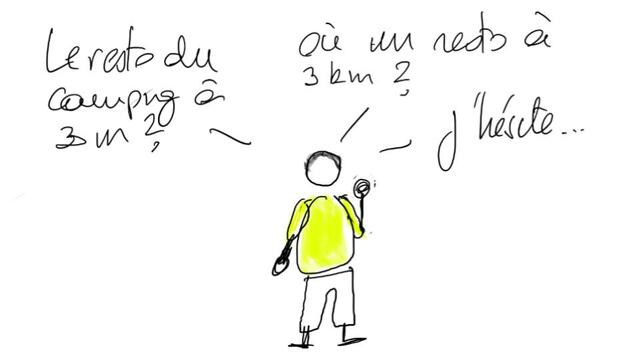 Le resto du
camping à
30 m ?
Où un resto à
3 km ?
J'hésite...